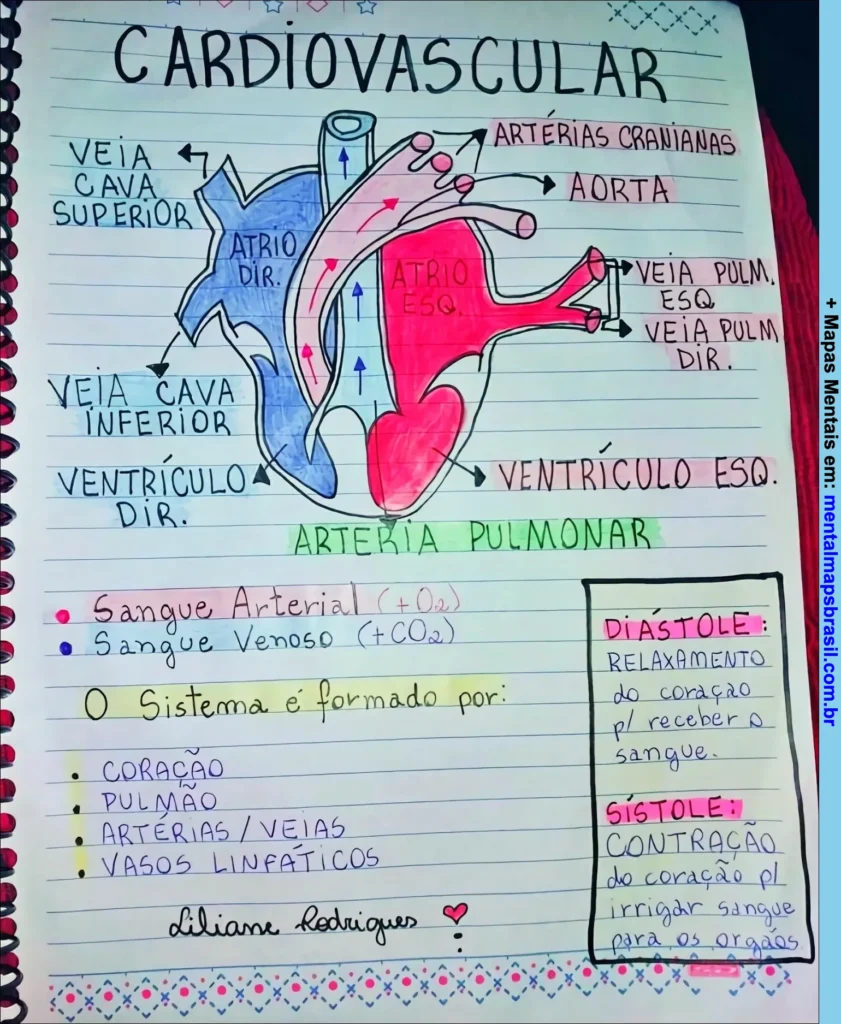 CARDIOVASCULAR
VEIA
CAVA
SUPERIOR
ARTÉRIAS CRANIANAS
AORTA
ATRIO
DIR.
ATRIO
ESQ.
VEIA PULM.
ESQ
VEIA PULM
DIR.
VEIA CAVA
INFERIOR
VENTRÍCULO
DIR.
VENTRÍCULO ESQ.
ARTERIA PULMONAR
• Sangue Arterial (+O2)
• Sangue Venoso (+CO2)
O Sistema é formado por:
• CORAÇÃO
• PULMÃO
• ARTÉRIAS / VEIAS
• VASOS LINFÁTICOS
Liliane Rodrigues
DIÁSTOLE:
RELAXAMENTO
do coração
p/ receber o
sangue.
SÍSTOLE:
CONTRAÇÃO
do coração p/
irrigar sangue
para os orgãos
+ Mapas Mentais em: mentalmapsbrasil.com.br